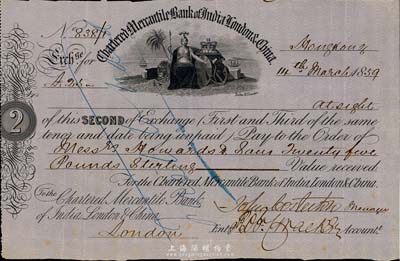 Chartered Mercantile Bank of India, London & China
No 838/1
Exchge for
Hongkong
14th March 1859
At sight
2
of this SECOND of Exchange (First and Third of the same
tenor and date being unpaid) Pay to the Order of
Messrs Howards & Sons Twenty five
Pounds Sterling Value received.
For the Chartered Mercantile Bank of India, London & China.
To the Chartered Mercantile Bank
of India, London & China
Manager
London
Entd Accountt